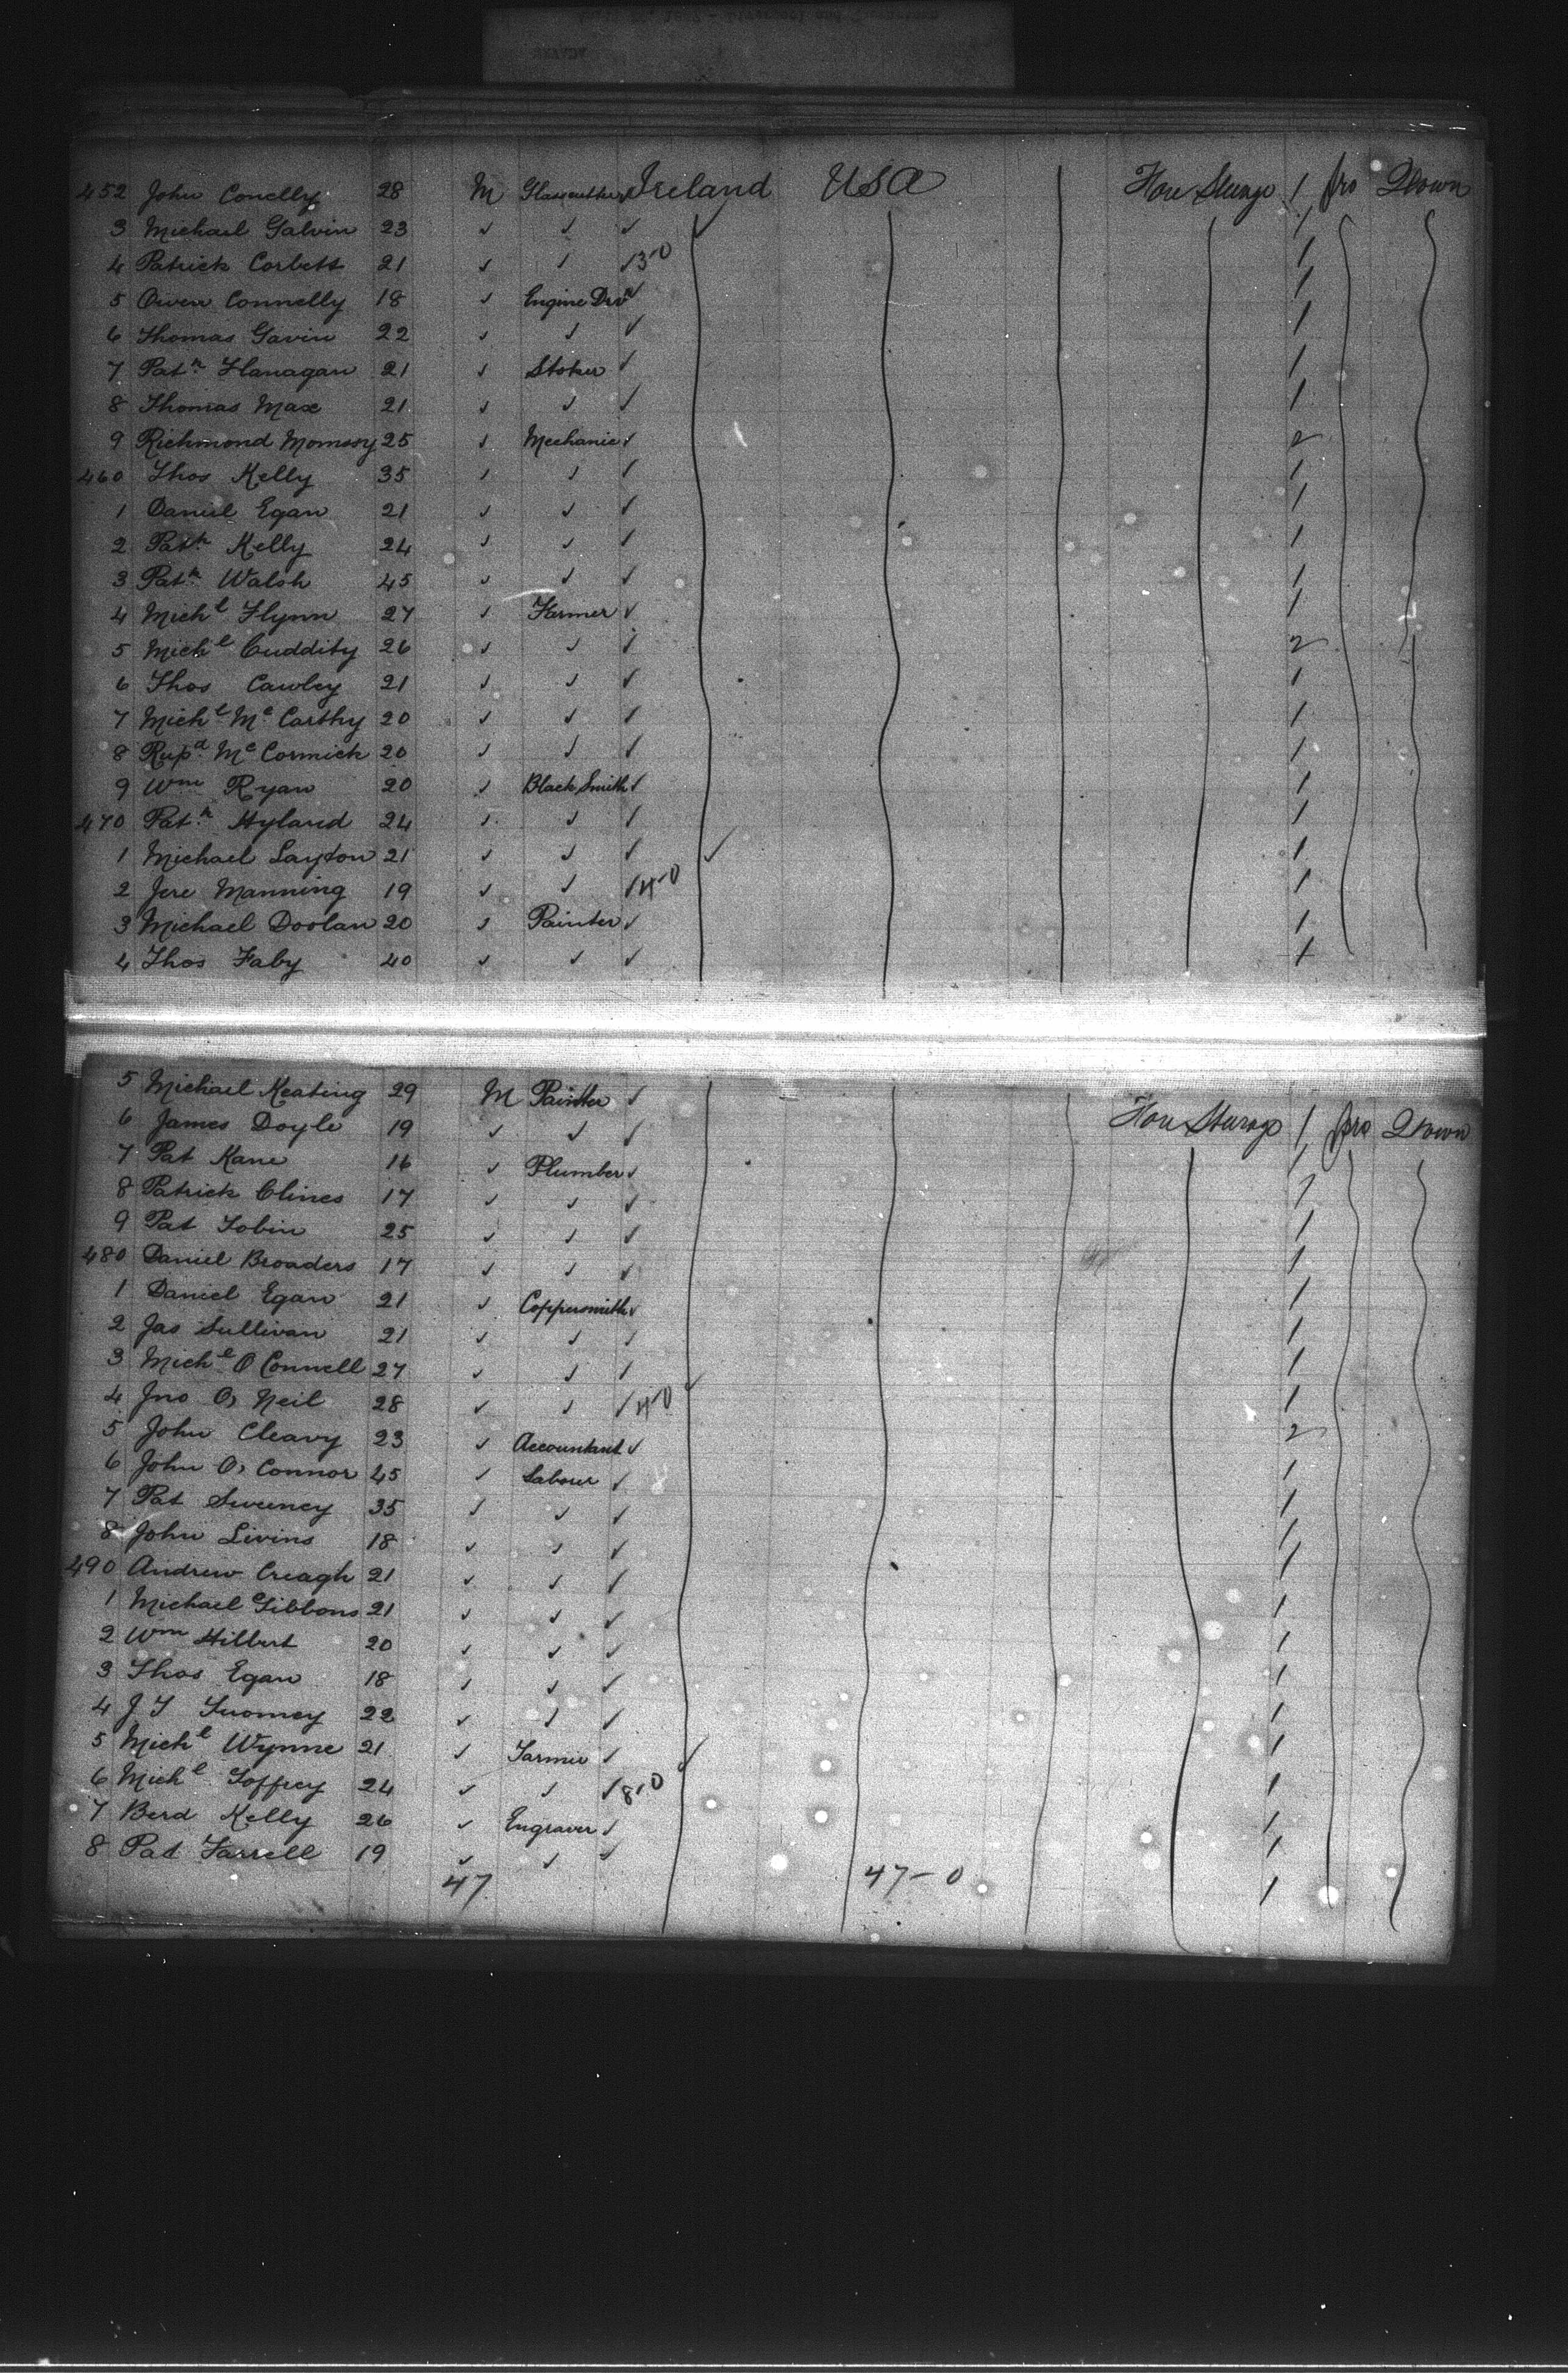 452 John Conelly 28 M Glasscutter Ireland USA Fore Steerage 1 pro Down
3 Michael Galvin 23 ✓ ✓ ✓ ✓ 1
4 Patrick Corbett 21 ✓ ✓ ✓ 3-0 1
5 Owen Connelly 18 ✓ Engine Drvr ✓ 1
6 Thomas Gavin 22 ✓ ✓ ✓ 1
7 Patk Flanagan 21 ✓ Stoker ✓ 1
8 Thomas Maxe 21 ✓ ✓ ✓ 1
9 Richmond 25 ✓ Mechanic ✓ 2
460 Thos Kelly 35 ✓ ✓ ✓ 1
1 Daniel Egan 21 ✓ ✓ ✓ 1
2 Patk Kelly 24 ✓ ✓ ✓ 1
3 Patk Walsh 45 ✓ ✓ ✓ 1
4 Michl Flynn 27 ✓ Farmer ✓ 1
5 Michl Cuddity 26 ✓ ✓ ✓ 2
6 Thos Cawley 21 ✓ ✓ ✓ 1
7 Michl Mc Carthy 20 ✓ ✓ ✓ 1
8 Rupd Mc Cormick 20 ✓ ✓ ✓ 1
9 Wm Ryan 20 ✓ Black Smith ✓ 1
470 Patk Hyland 24 ✓ ✓ ✓ 1
1 Michael Layton 21 ✓ ✓ ✓ ✓ 1
2 Jere Manning 19 ✓ ✓ ✓ 4-0 1
3 Michael Doolan 20 ✓ Painter ✓ 1
4 Thos Faby 40 ✓ ✓ ✓ 1
5 Michael Keating 29 M Painter ✓ Fore Steerage 1 pro Down
6 James Doyle 19 ✓ ✓ ✓ 1
7 Pat Kane 16 ✓ Plumber ✓ 1
8 Patrick Clines 17 ✓ ✓ ✓ 1
9 Pat Tobin 25 ✓ ✓ ✓ 1
480 Daniel Broaders 17 ✓ ✓ ✓ 1
1 Daniel Egan 21 ✓ Coppersmith ✓ 1
2 Jas Sullivan 21 ✓ ✓ ✓ 1
3 Michl O Connell 27 ✓ ✓ ✓ 1
4 Jno O, Neil 28 ✓ ✓ ✓ 4-0 ✓ 2
5 John Cleavy 23 ✓ Accountant ✓ 1
6 John O, Connor 45 ✓ Labour ✓ 1
7 Pat Sweeney 35 ✓ ✓ ✓ 1
8 John Livins 18 ✓ ✓ ✓ 1
490 Andrew Creagh 21 ✓ ✓ ✓ 1
1 Michael Gibbons 21 ✓ ✓ ✓ 1
2 Wm Hilbert 20 ✓ ✓ ✓ 1
3 Thos Egan 18 ✓ ✓ ✓ 1
4 J T Tuomey 22 ✓ ✓ ✓ 1
5 Michl Wynne 21 ✓ Farmer ✓ ✓ 1
6 Michl 24 ✓ ✓ ✓ 8-0 1
7 Berd Kelly 26 ✓ Engraver ✓ 1
8 Pat Farrell 19 ✓ ✓ ✓ 1
47 47-0